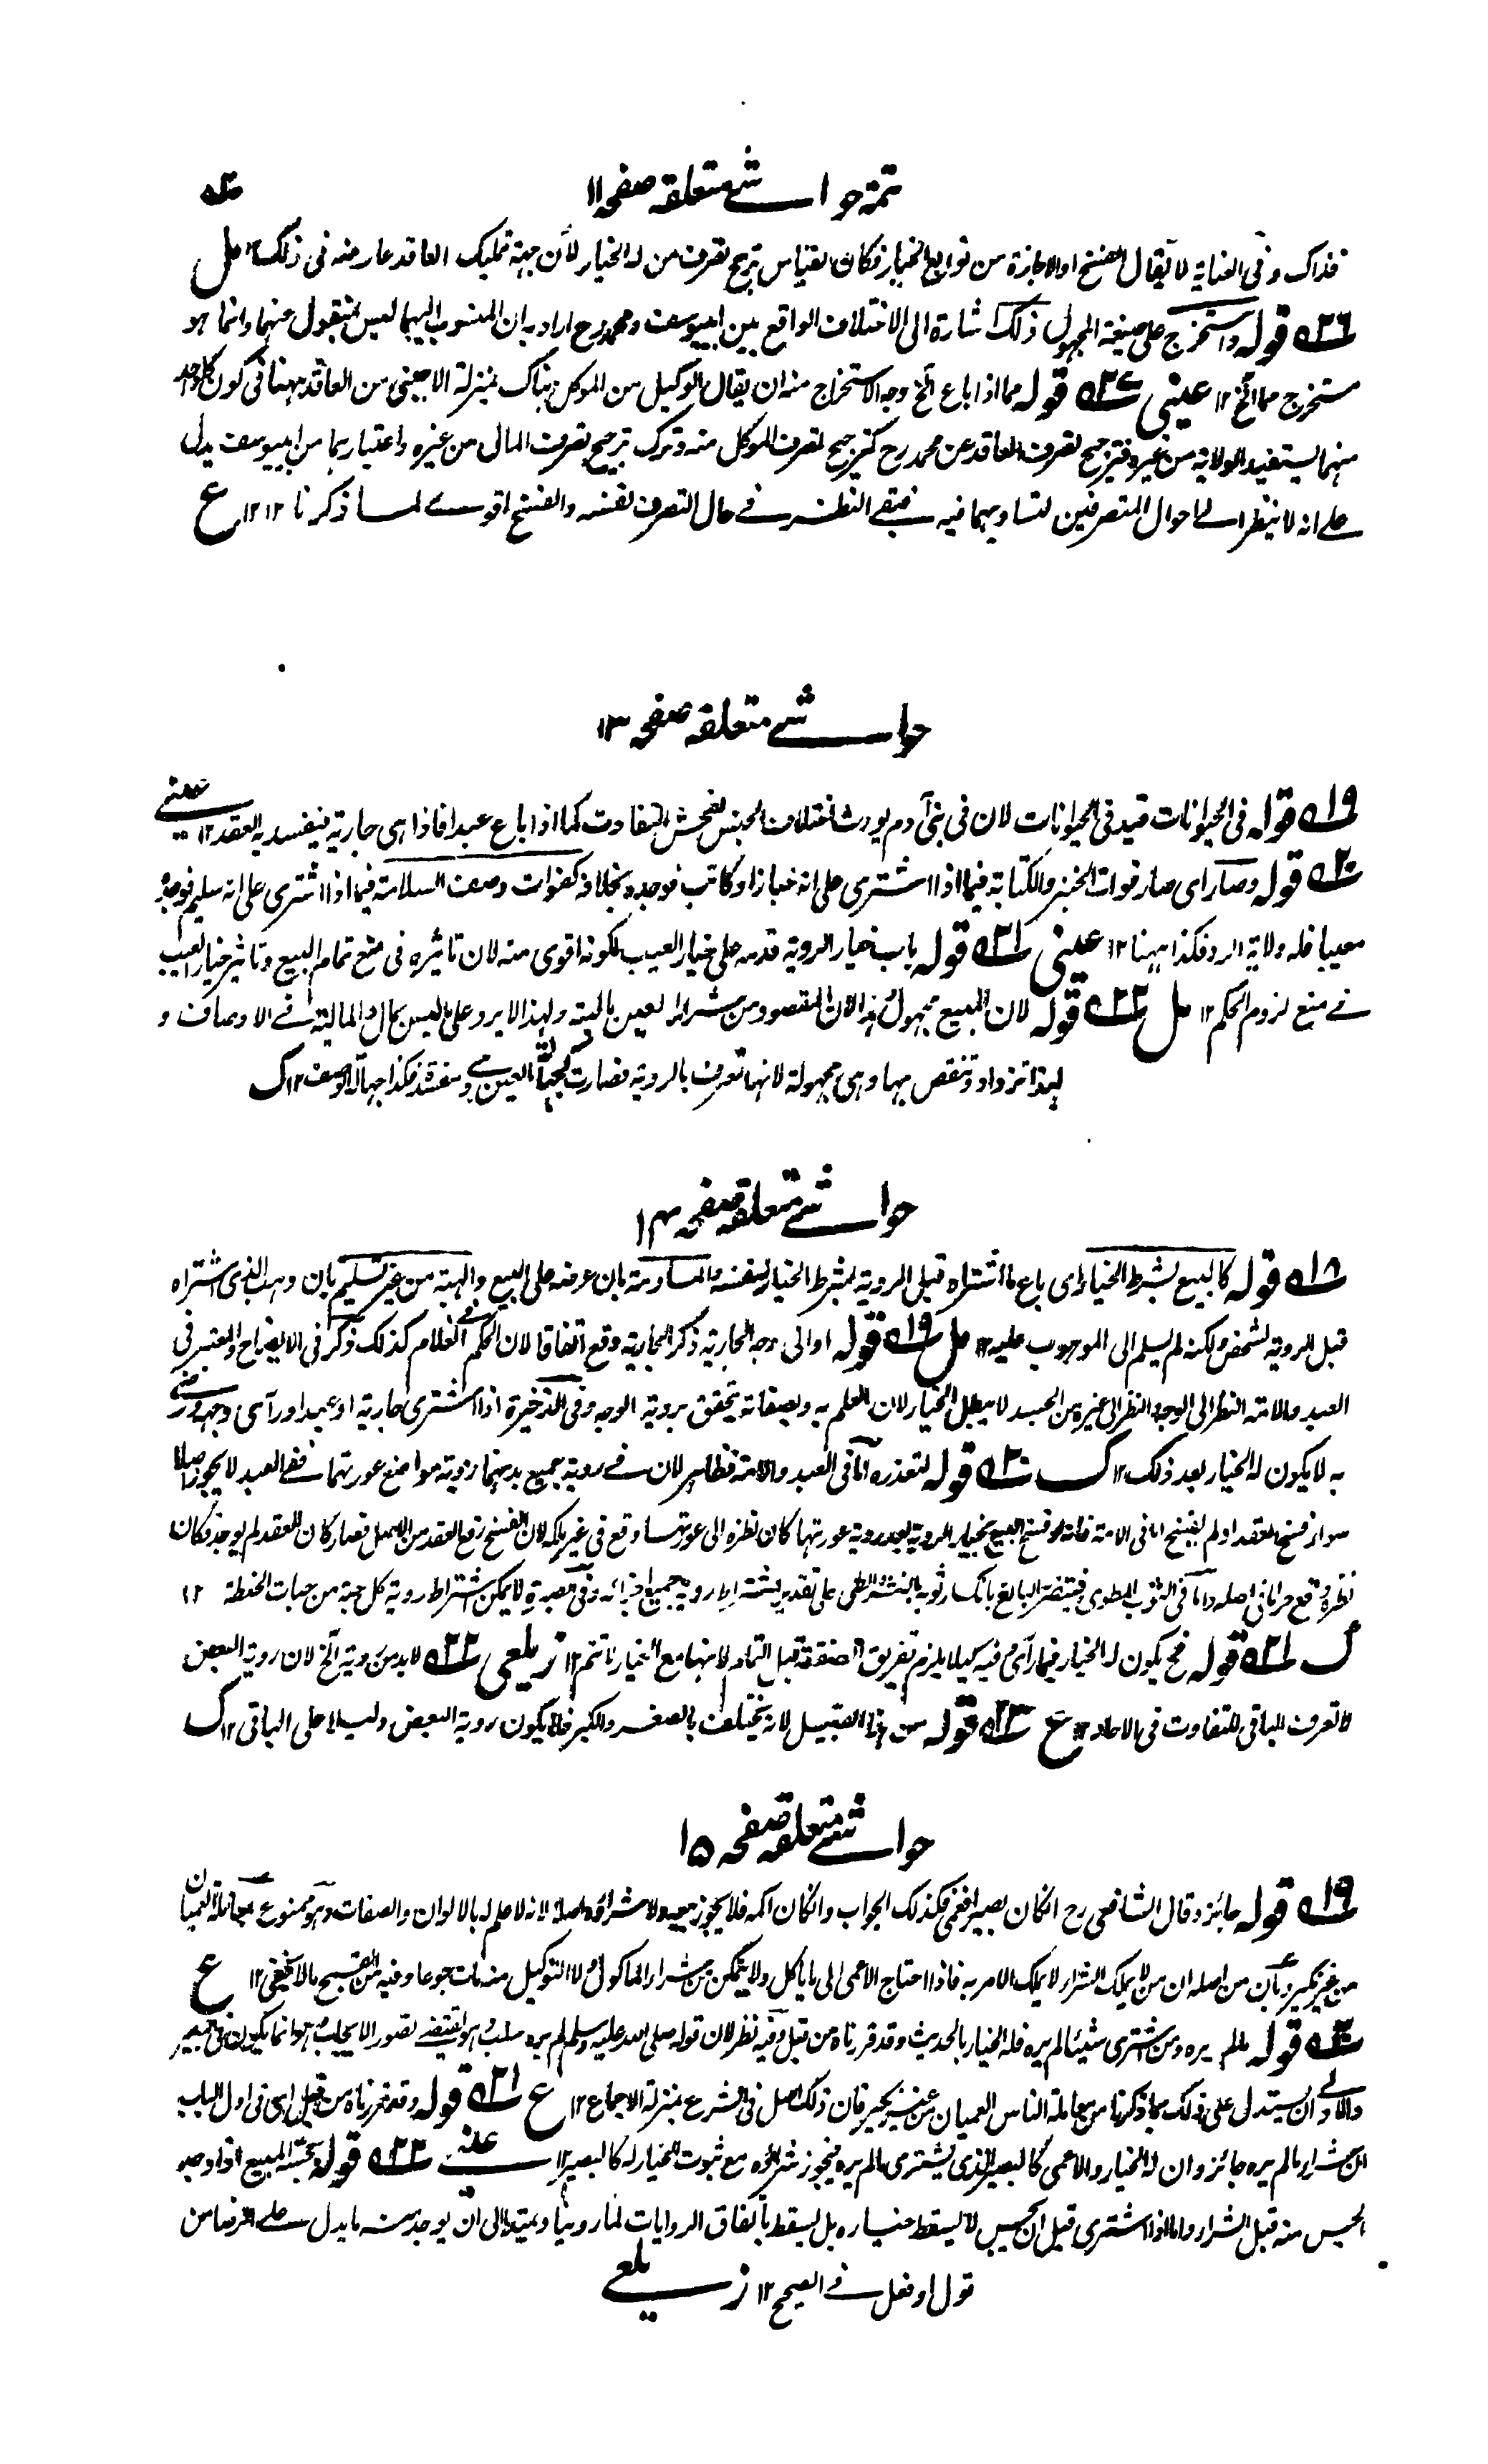 تتمة حواشے متعلقہ صفحہ ۱۱
فذاك وفی العنایة لا یقال الفسخ او الاجازة من توابع الخیار فكان القیاس ترجیح تصرف من له الخیار لأن جهة تملیك العاقد عار منه فی ذلك ۱۲ مل
۲۶ قوله واستخرج علی صیغة المجهول ذلك اشارة الی الاختلاف الواقع بین ابیوسف ومحمد رح اراد به ان المنسوب الیهما لیس بمنقول عنهما وانما هو
مستخرج مما الخ ۱۲ عینی ۲۷ قوله مما اذا باع الخ وجه الاستخراج منه ان یقال الوكیل من الموكل هناك بمنزلة الاجنبی من العاقد ههنا فی كون كل واحد
منهما یستفید الولایة من غیره فترجیح تصرف العاقد عن محمد رح كترجیح تصرف الموكل منه وترك ترجیح تصرف المالك من غیره واعتبارهما من ابیوسف یدل
علے انه لا ینظر الے احوال المتصرفین لتساویهما فیه فبقے النظر فے حال التصرف نفسه والفسخ اقوے لما ذكرنا ۱۲ ۱۲ ع
حواشے متعلقہ صفحہ ۱۳
۱۹ قوله فی الحیوانات قید فی الحیوانات لان فی بنی آدم یورث اختلاف الجنس لفحش التفاوت كما اذا باع عبدا فاذا هی جاریة فیفسد به العقد ۱۲ عینے
۲۰ قوله وصار ای صار فوات الخبز والكتابة فیما اذا اشتری علی انه خباز او كاتب فوجده بخلافه كفوات وصف السلامة فیما اذا اشتری علی انه سلیم فوجده
معیبا فله ولایة الرد فكذا ههنا ۱۲ عینی ۲۱ قوله باب خیار الرویة قدمه علی خیار العیب لكونه اقوی منه لان تاثیره فی منع تمام البیع وتاثیر خیار العیب
فے منع لزوم الحكم ۱۲ مل ۲۲ قوله لان المبیع مجهول هذا لان المقصود من شراء العین مالیته ولهذا لا یرد علی ما لیس بمال والمالیة فے الاوصاف و
لهذا تزداد وتنقص بها وهی مجهولة لانها تعرف بالرویة فصارت كجهالة العین وهی مفسدة فكذا جهالة الوصف ۱۲ ك
حواشے متعلقہ صفحہ ۱۴
۱۸ قوله كالبیع بشرط الخیار ای باع ما اشتراه قبل الرویة بشرط الخیار لنفسه والمساومة بان عرضه علی البیع والهبة من غیر تسلیم بان وهب الذی اشتراه
قبل الرویة لشخص ولكنه لم یسلم الی الموهوب علیه ۱۲ مل ۱۹ قوله او الی وجه الجاریة ذكر الجاریة وقع اتفاقا لان الحكم فے الغلام كذلك ذكر فی الایضاح والمعتبر فی
العبد والامة النظر الی الوجه والنظر الی غیره من الجسد لا یبطل الخیار لان العلم به وبصفاته یتحقق برویة الوجه وفی الذخیرة اذا اشتری جاریة او عبدا ورآی وجهه ورضے
به لا یكون له الخیار بعد ذلك ۱۲ ك ۲۰ قوله لتعذره اما فی العبد والامة فظاهر لان فے رویة جمیع بدنهما رویة مواضع عورتهما ففے العبد لا یجوز اصلا
سواء فسخ العقد او لم یفسخ اما فی الامة فانه لو فسخ البیع بخیار الرویة بعد رویة عورتها كان نظره الی عورتها وقع فی غیر ملكه لان الفسخ رفع العقد من الاصل فصار كان العقد لم یوجد فكان
نظره وقع حراما فی اصله واما فی الثوب المطوی فیتضرر البائع بانكسار ثوبه بالنشر والطی علی تقدیر اشتراط رویة جمیع اجزائه وفی الصبرة لا یمكن اشتراط رویة كل حبة من حبات الحنطة ۱۲
ك ۲۱ قوله فح یكون له الخیار فیما رآی وما فیه كیلا یلزم تفریق الصفقة قبل التمام لانها مع الخیار لا تتم ۱۲ زیلعی ۲۲ لا بد من رویة الخ لان رویة البعض
لا تعرف الباقی للتفاوت فی الآحاد ۱۲ ع ۲۳ قوله من هذا القبیل لانه یختلف بالصغر والكبر فلا یكون رویة البعض دلیلا علی الباقی ۱۲ ك
حواشے متعلقہ صفحہ ۱۵
۱۹ قوله جائز وقال الشافعی رح ان كان بصیرا فعمی فكذلك الجواب وان كان اكمه فلا یجوز بیعه ولا شراؤه اصلا لانه لا علم له بالالوان والصفات وهو ممنوع بمعاملة العمیان
من غیر نكیر وبأن من اصله ان من لا یملك الشراء لا یملك الامر به فاذا احتاج الاعمی الی ما یاكل ولا یتمكن من شراء الماكول ولا التوكیل منه مات جوعا وفیه من القبح ما لا یخفی ۱۲ ع
۲۰ قوله ما لم یره ومن اشتری شیئا لم یره فله الخیار بالحدیث وقد قررناه من قبل وفیه نظر لان قوله صلی الله علیه وسلم لم یره سلب وهو یقتضے تصور الایجاب وهو انما یكون فی بصیر
والاولے ان یستدل علی ذلك بما ذكرنا من معاملة الناس العمیان من غیر نكیر فان ذلك اصل فی الشرع بمنزلة الاجماع ۱۲ ع ۲۱ قوله وقد قررناه من قبل ای فی اول الباب
ان شراء ما لم یره جائز وان له الخیار والاعمی كالبصیر الذی یشتری ما لم یره فیجوز شراؤه مع ثبوت الخیار له كالبصیر ۱۲ عینے ۲۲ قوله بجسه المبیع اذا وجد
الجس منه قبل الشراء واما اذا اشتری قبل ان یجس لا یسقط خیاره بل یسقط باتفاق الروایات لما روینا ویمتد الی ان یوجد منه ما یدل علے الرضا من
قول او فعل فے الصحیح ۱۲ زیلعے